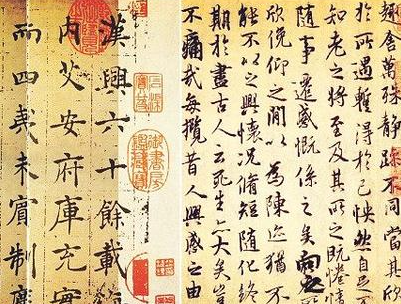 趣舍萬殊靜躁不同當其欣
於所遇暫得於己怏然自足
知老之將至及其所之既惓
隨事遷感慨係之矣向之
欣俛仰之閒以為陳迹猶不
能不以之興懷況脩短隨化終
期於盡古人云死生亦大矣豈
不痛哉每攬昔人興感之由
漢興六十餘載
內艾安府庫充實
而四夷未賓制度